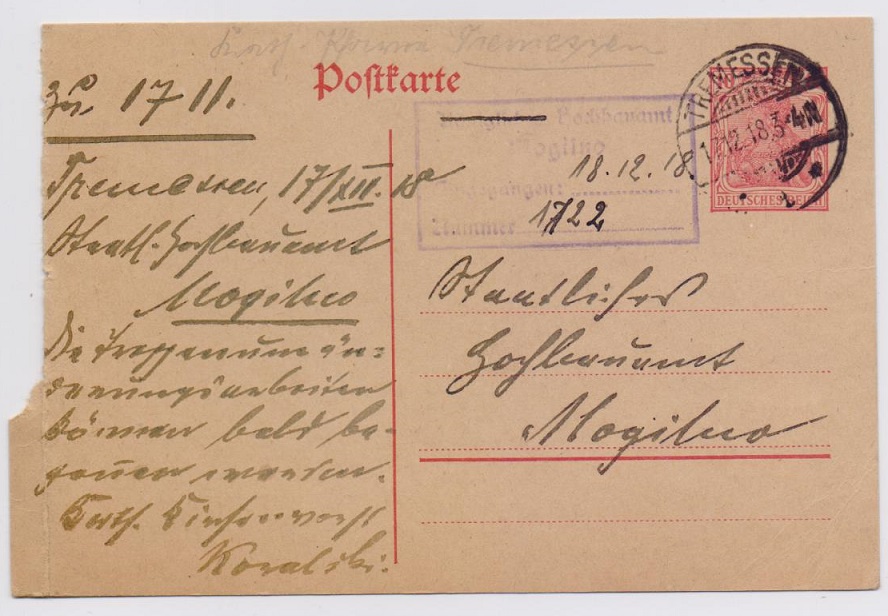 Kath. Pfarre Tremessen
Postkarte
Zu. 1711.
Tremessen, 17/XII. 18
Staatl. Hochbauamt
Mogilno
Die Treppenumän=
derungsarbeiten
können bald be-
gonnen werden.
Kath. Kirchenvorst
Kovalski.
Hochbauamt
Mogilno
18.12.18.
Eingegangen:
Nummer 1722
TREMESSEN
17.12.18.3-4N
DEUTSCHES REICH
Staatliches
Hochbauamt
Mogilno